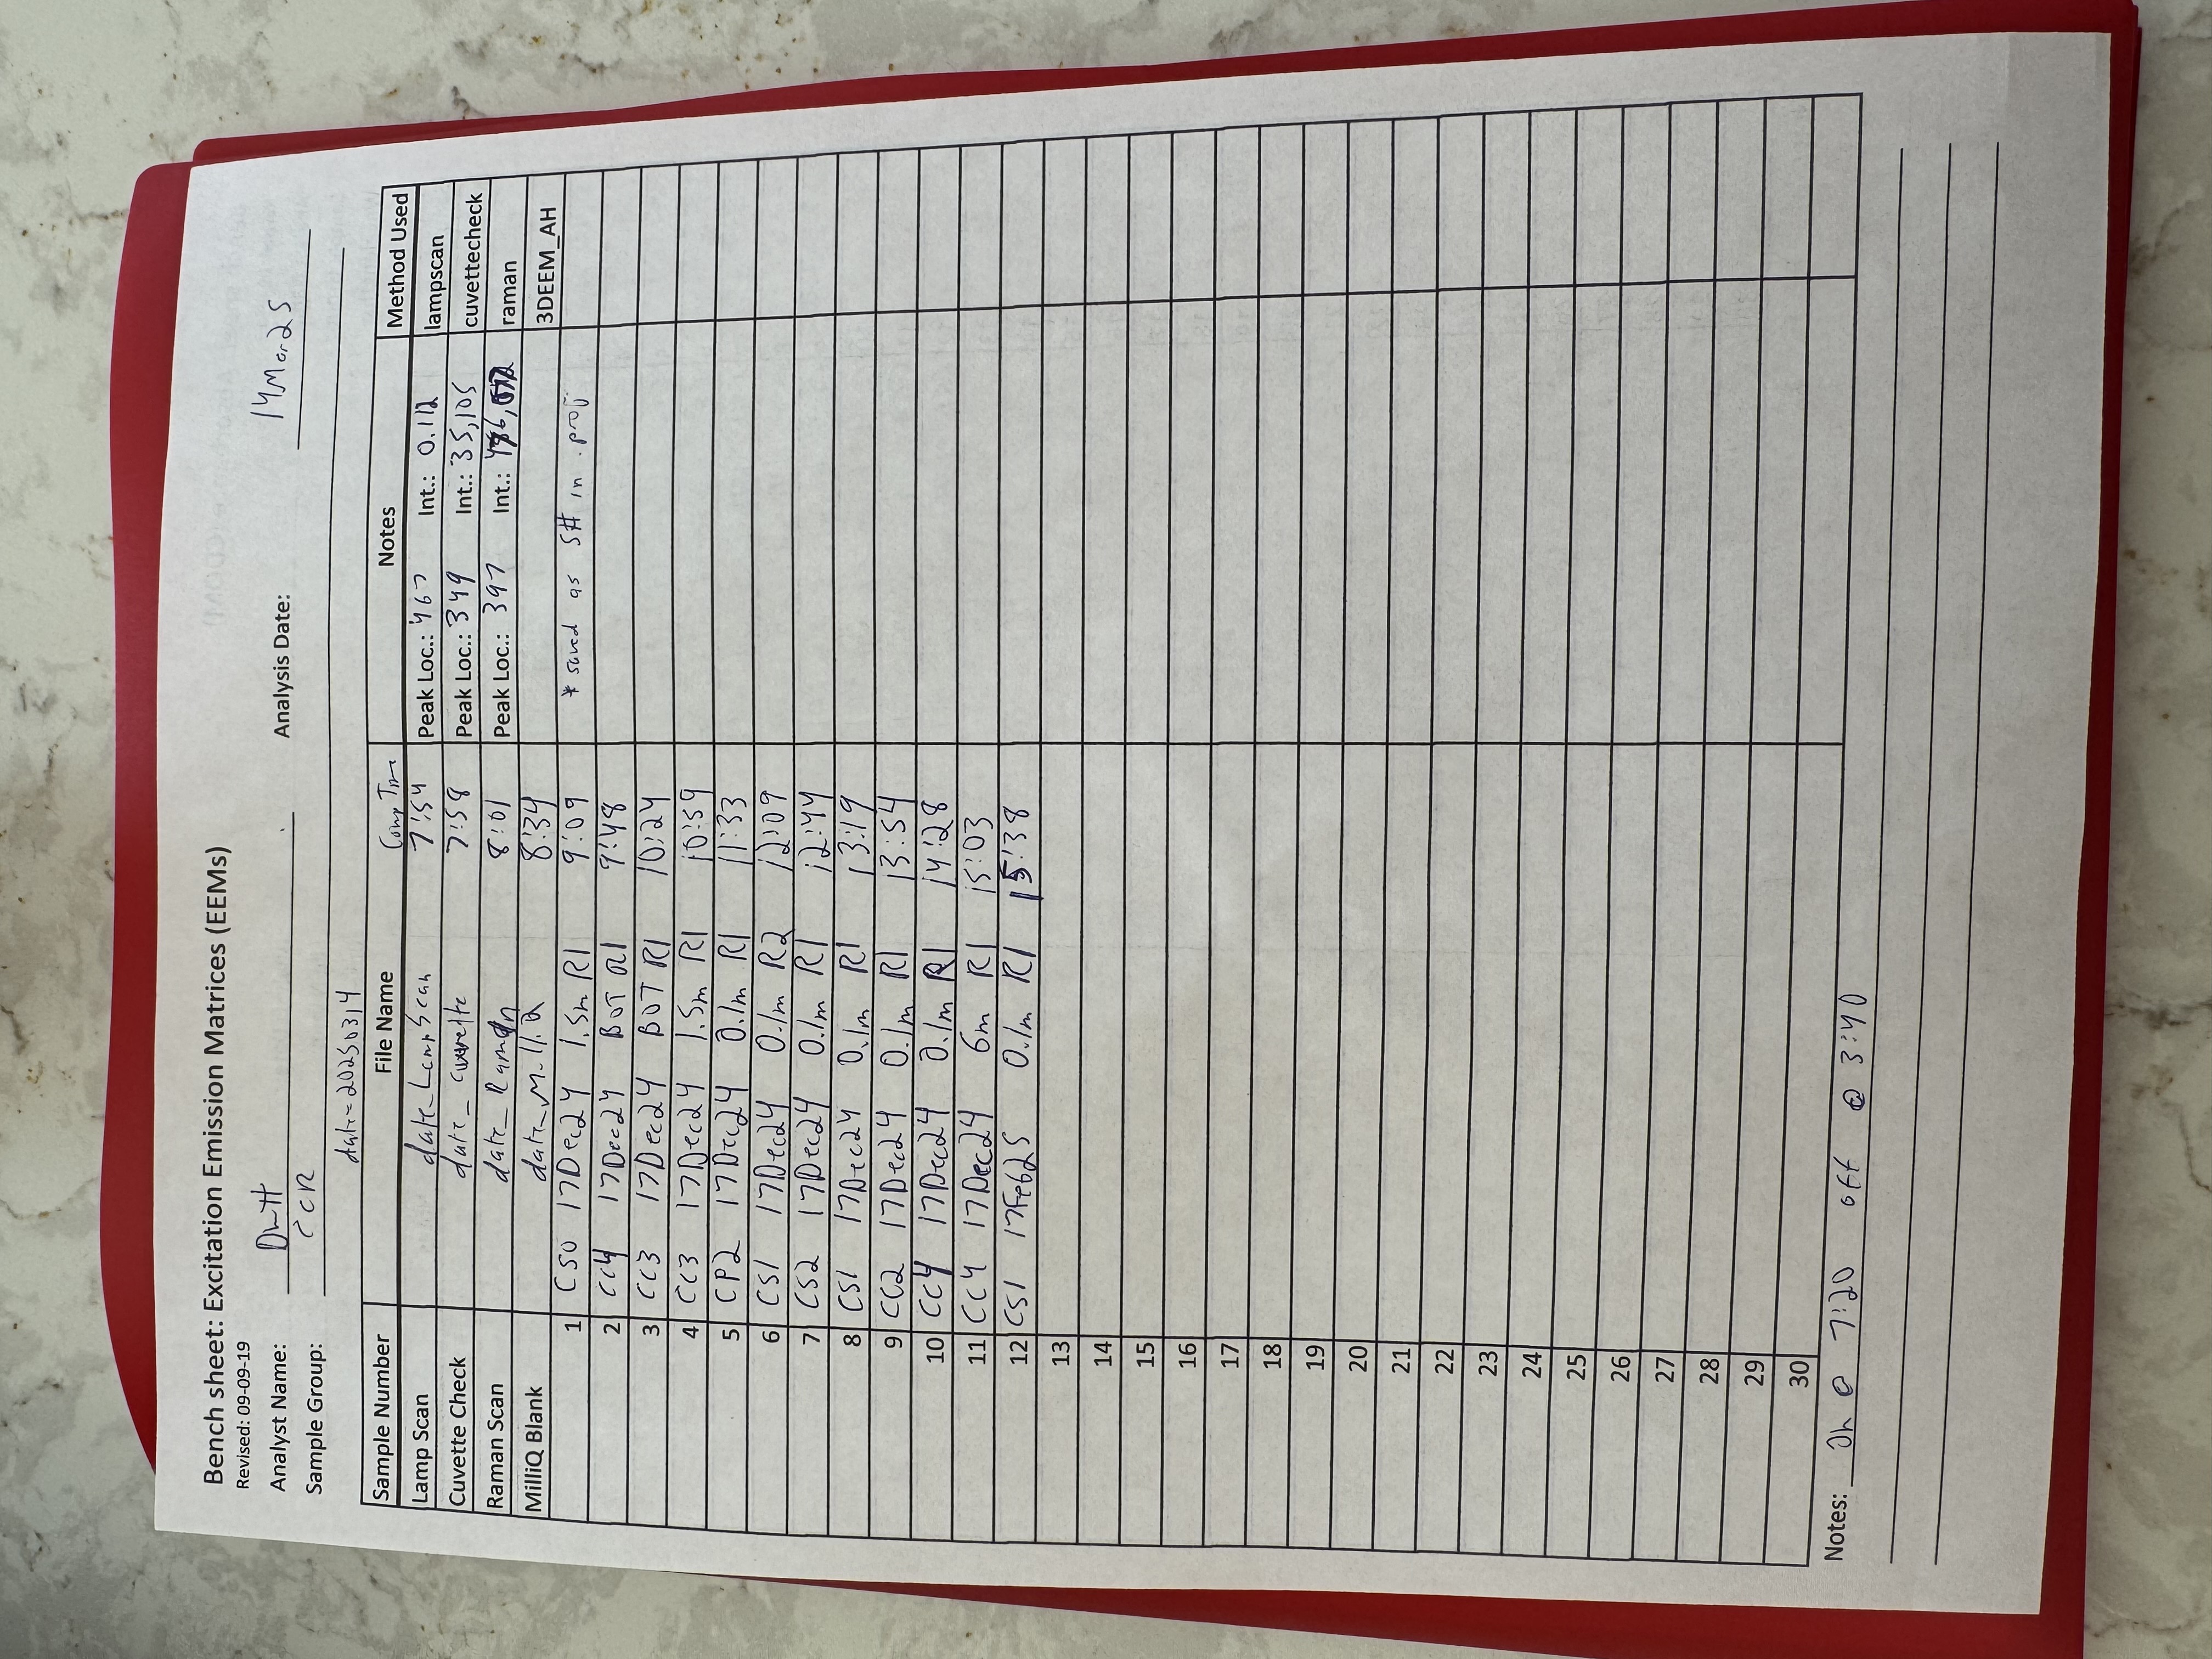 Bench sheet: Excitation Emission Matrices (EEMs)
Revised: 09-09-19
Analyst Name: DWH Analysis Date: 14Mar25
Sample Group: CCR
date=20250314
Sample Number File Name Comp Time Notes Method Used
Lamp Scan date_LampScan 7:54 Peak Loc.: 467 Int.: 0.112 lampscan
Cuvette Check date_cuvette 7:58 Peak Loc.: 349 Int.: 35,105 cuvettecheck
Raman Scan date_Raman 8:01 Peak Loc.: 397 Int.: raman
MilliQ Blank date_MilliQ 8:34 3DEEM_AH
1 CS0 17Dec24 1.5m R1 9:09 *saved as S# in .proj
2 CC4 17Dec24 BOT R1 9:48
3 CC3 17Dec24 BOT R1 10:24
4 CC3 17Dec24 1.5m R1 10:59
5 CP2 17Dec24 0.1m R1 11:33
6 CS1 17Dec24 0.1m R2 12:09
7 CS2 17Dec24 0.1m R1 12:44
8 CS1 17Dec24 0.1m R1 13:19
9 CC2 17Dec24 0.1m R1 13:54
10 CC4 17Dec24 0.1m R1 14:28
11 CC4 17Dec24 6m R1 15:03
12 CS1 17Feb25 0.1m R1 15:38
13
14
15
16
17
18
19
20
21
22
23
24
25
26
27
28
29
30
Notes: On @ 7:20 off @ 3:40